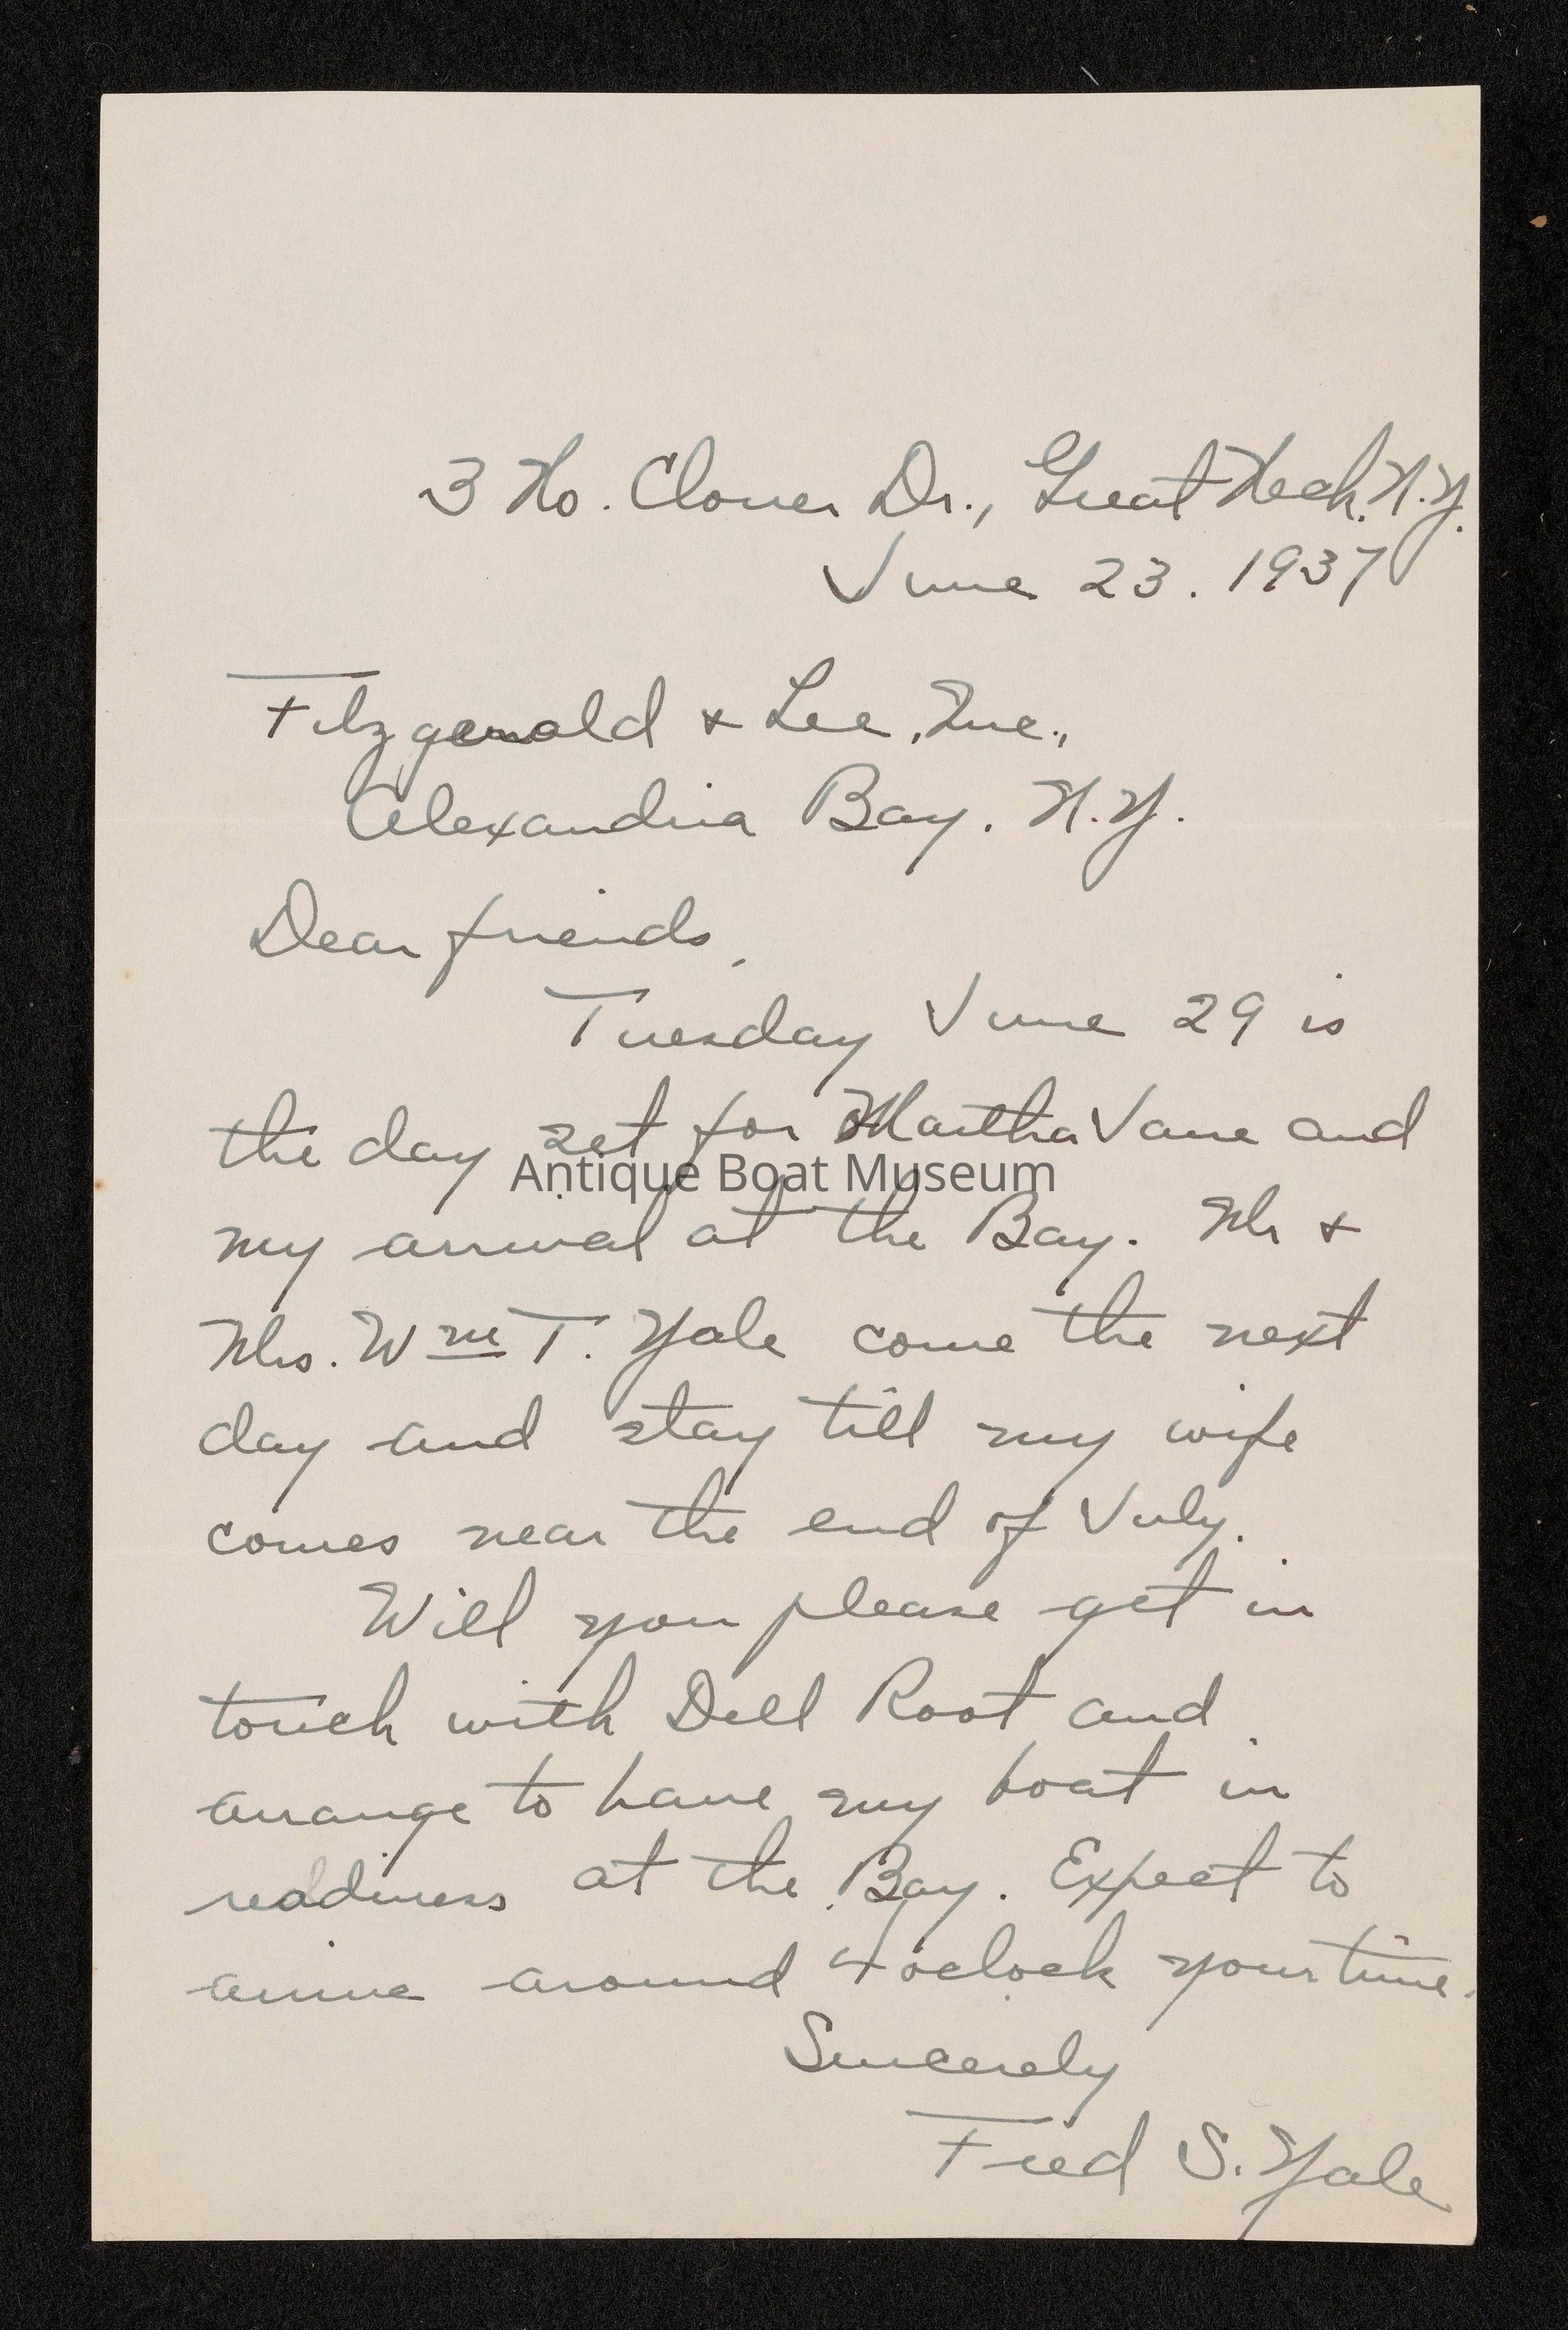 3 No. Clover Dr., Great Neck, N.Y.
June 23. 1937
Fitzgerald & Lee, Inc.,
Alexandria Bay. N.Y.
Dear friends,
Tuesday June 29 is
the day set for Martha Jane and
Antique Boat Museum
my arrival at the Bay. Mr &
Mrs. Wm T. Yale come the next
day and stay till my wife
comes near the end of July.
Will you please get in
touch with Dell Root and
arrange to have my boat in
readiness at the Bay. Expect to
arrive around 4 oclock your time.
Sincerely
Fred S. Yale